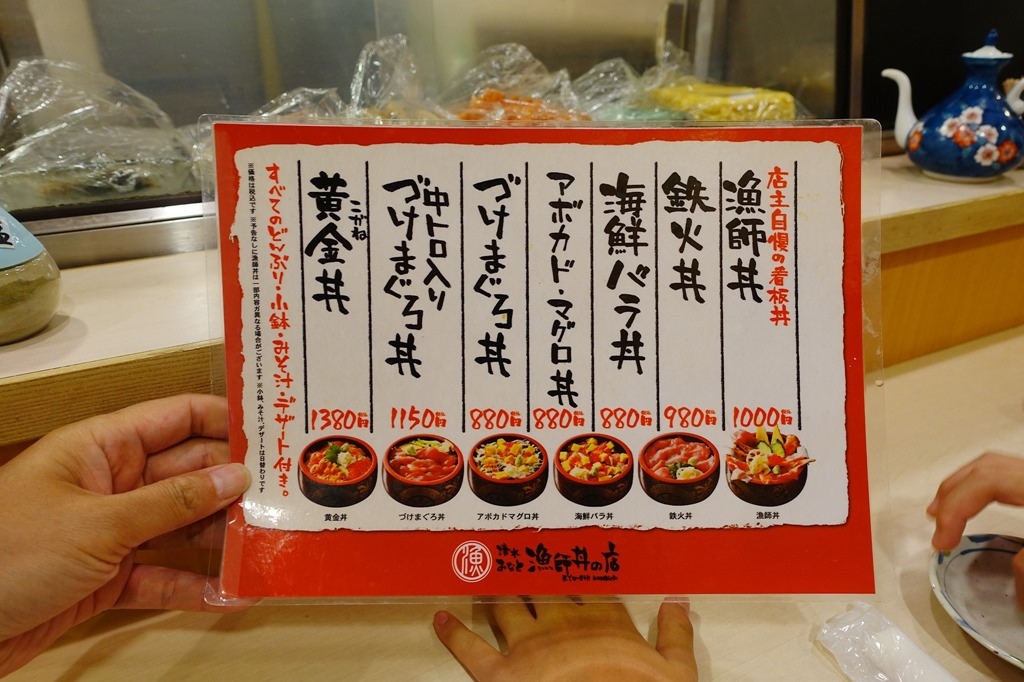 店主自慢の看板丼
漁師丼
1000円
鉄火丼
980円
海鮮バラ丼
880円
アボカド・マグロ丼
880円
づけまぐろ丼
880円
中トロ入り
づけまぐろ丼
1150円
こがね
黄金丼
1380円
すべてのどんぶり・小鉢・みそ汁・デザート付き。
※価格は税込です ※予告なしに漁師丼は一部内容が異なる場合がございます ※小鉢、みそ汁、デザートは日替わりです
黄金丼
づけまぐろ丼
アボカドマグロ丼
海鮮バラ丼
鉄火丼
漁師丼
漁
清水
みなと
漁師丼の店